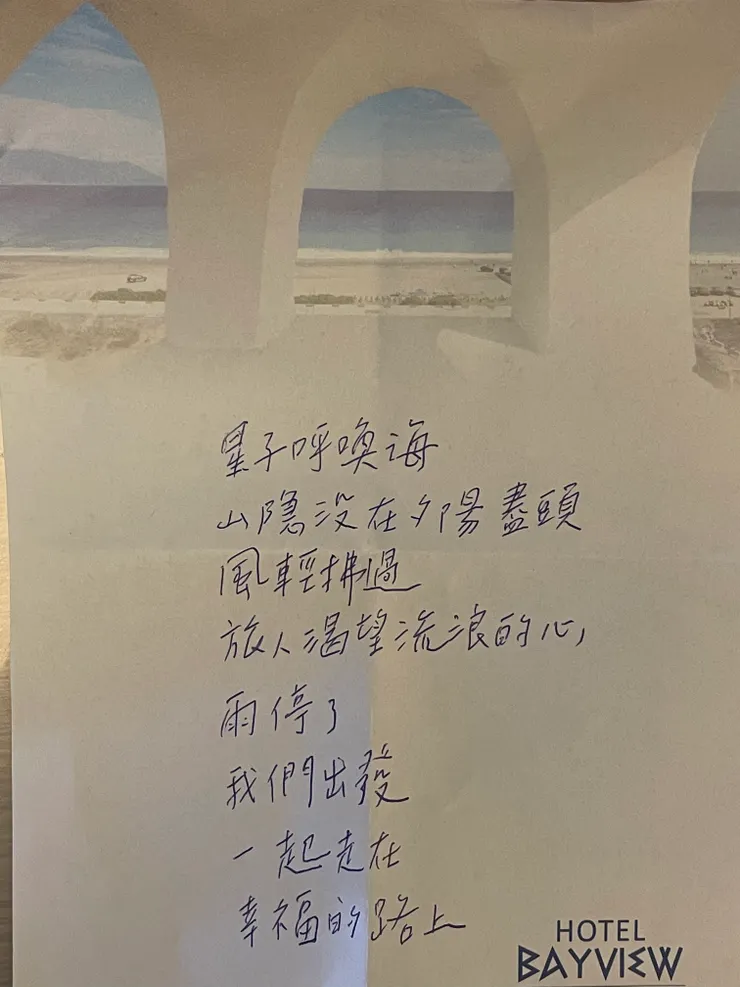 星子呼喚海
山隱沒在夕陽盡頭
風輕拂過
旅人渴望流浪的心
雨停了
我們出發
一起走在
幸福的路上
HOTEL
BAYVIEW